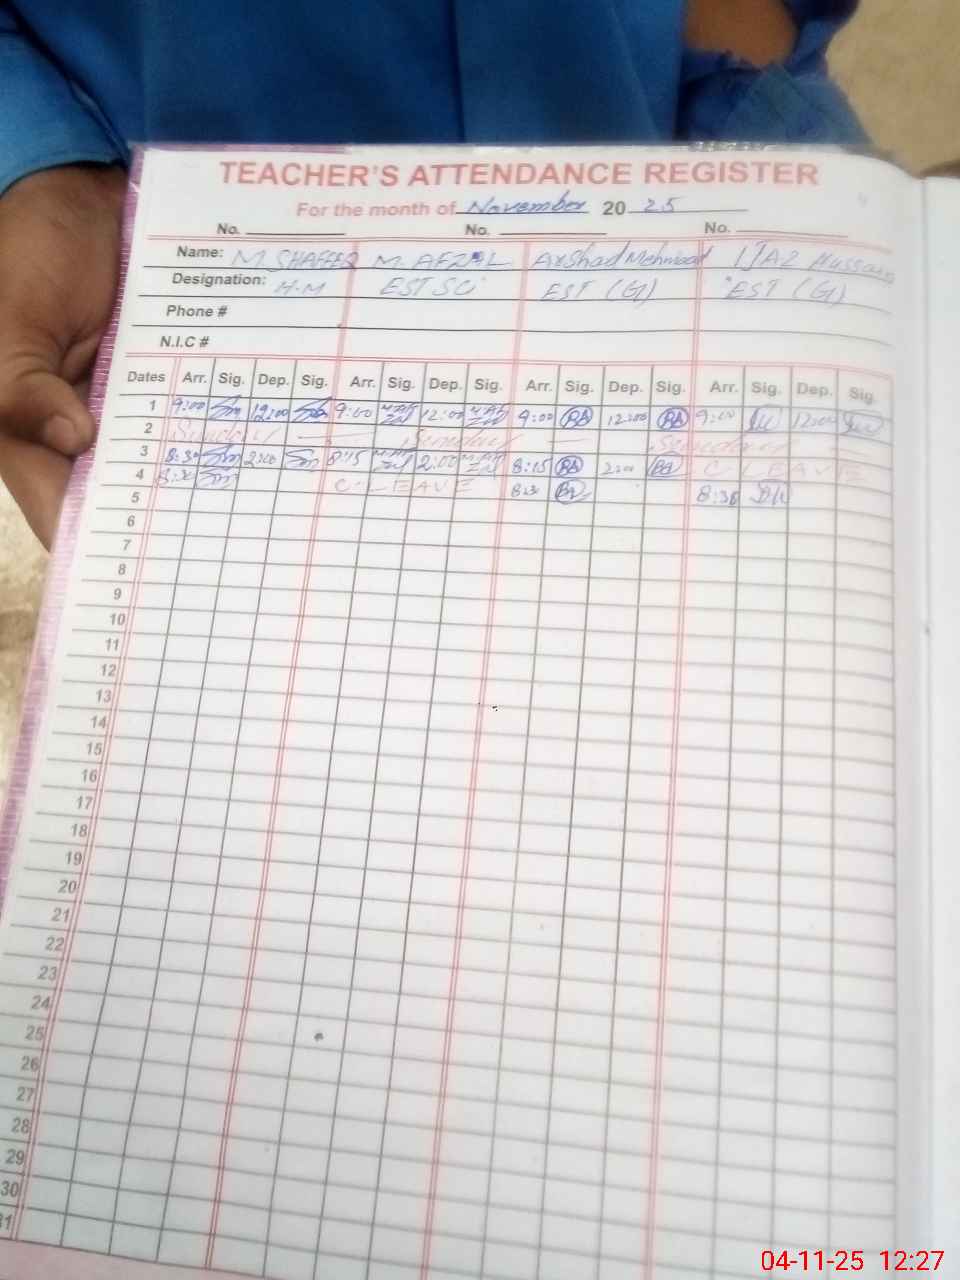 TEACHER'S ATTENDANCE REGISTER
For the month of November 20 25
No. No. No.
Name: M. SHAFEEQ M. AFZAL Arshad Mehmood IJAZ Hussain
Designation: H.M EST SC EST (G) EST (G)
Phone #
N.I.C #
Dates Arr. Sig. Dep. Sig. Arr. Sig. Dep. Sig. Arr. Sig. Dep. Sig. Arr. Sig. Dep. Sig.
1 9:00 12:00 9:00 12:00 9:00 12:00 9:00 12:00
2 Sunday Sunday Sunday
3 8:30 2:00 8:15 2:00 8:15 2:00 C-LEAVE
4 8:30 C-LEAVE 8:30 8:30
5
6
7
8
9
10
11
12
13
14
15
16
17
18
19
20
21
22
23
24
25
26
27
28
29
30
31
04-11-25 12:27